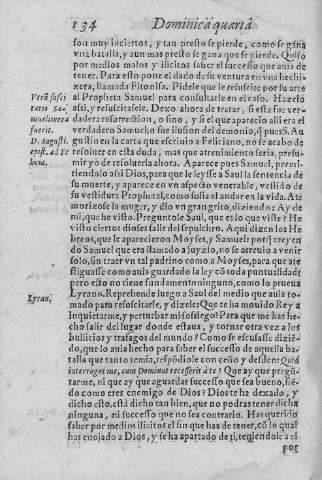 134 Dominica quarta
son muy iliciertos, y tan presto se pierde, como se gana
vna batalla, y aun mas presto se gana que se pierde. Quiso
por medios malos y iliicitos saber el successo que auia de
tener. Para esto pone el dado de su ventura en vna hechi-
zera, llamada Fitonisa. Pidele que le resuscite por su arte
al Propheta Samuel para consultarle en el caso. Hazelo
assi, y resuscitasele. Dexo ahora de tratar, si esta fue ver-
dadera resurrection, o sino, y si el que aparecio alli era el
verdadero Samuel, o fue ilusion del demonio, q̃ pues S. Au
gustin en la carta que escriuio a Feliciano, no se acabo de
resoluer en esta duda, mas que atreuimiento seria, presu-
mir yo de resoluerla ahora. Aparece pues Samuel, permi-
tiendolo assi Dios, para que le leysse a Saul la sentencia de
su muerte, y aparece en vn aspecto venerable, vestido de
su vestidura Prophetal, como solia el andar en la vida. Ate
morizose la muger, y dio vn gran grito, diziendo: Ay de
mi, que he visto. Preguntole Saul, que es lo que viste? He
visto ciertos dioses salir del sepulchro. Aqui dizen los He
breos, que le aparecieron Moyses, y Samuel porq̃ creyẽs
do Samuel que era llamado a juyzio, no se atreuio a venir
solo, sin traer vn tal padrino como a Moyses, para que ate
stiguasse como auia guardado la ley cõ toda puntualidad;
pero esto no tiene fundamento ninguno, como lo prueua
Lyrano. Reprehende luego a Saul del medio que auia to-
mado para resuscitarle, y dizele: Que te ha mouido Rey a
inquietarme, y perturbar mi sosiego? Para que me has he-
cho salir del lugar donde estaua, y tornar otra vez a los
bullicios y trafagos del mundo? Como se escusasse diziẽ-
do, que lo auia hecho para saber el successo de aquella ba-
talla que tanto temia, respõdiole con ceño y desden: Quid
interrogas me, cum Dominus recesserit à te? Que ay que pregũ-
tarme, ni que ay que aguardar successo que sea bueno, siẽ-
do como eres enemigo de Dios? Dios te ha dexado, y
dicho esto, està dicho tan bien, que no podras tener dicha
ninguna, ni successo que no sea contrario. Has querido
saber por medios ilicitos el fin que has de tener, cõ lo qual
has enojado a Dios, y se ha apartado de ti, teniendole a el
por
Verũ susci-
tatio Sa-
muelis vera
fuerit.
D. Augusti.
epist. ad Fe
Lyran.